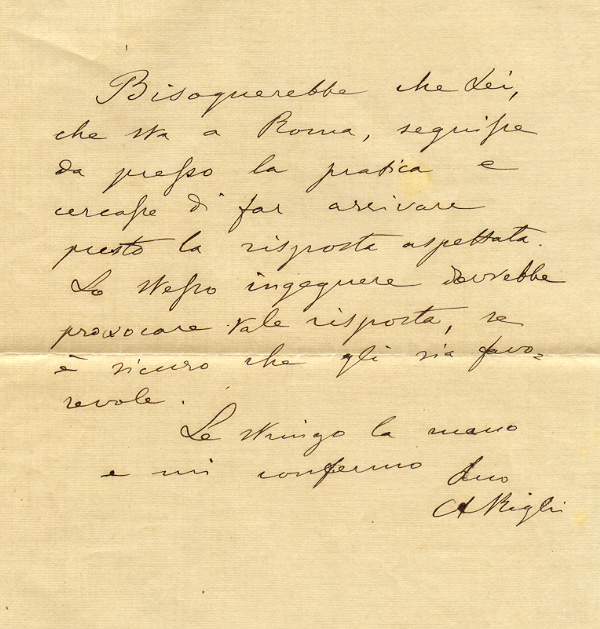 Bisognerebbe che Lei,
che sta a Roma, seguisse
da presso la pratica e
cercasse di far arrivare
presto la risposta aspettata.
Lo stesso ingegnere dovrebbe
provocare tale risposta, se
è sicuro che gli sia favo=
revole.
Le stringo la mano
e mi confermo Suo
A Righi